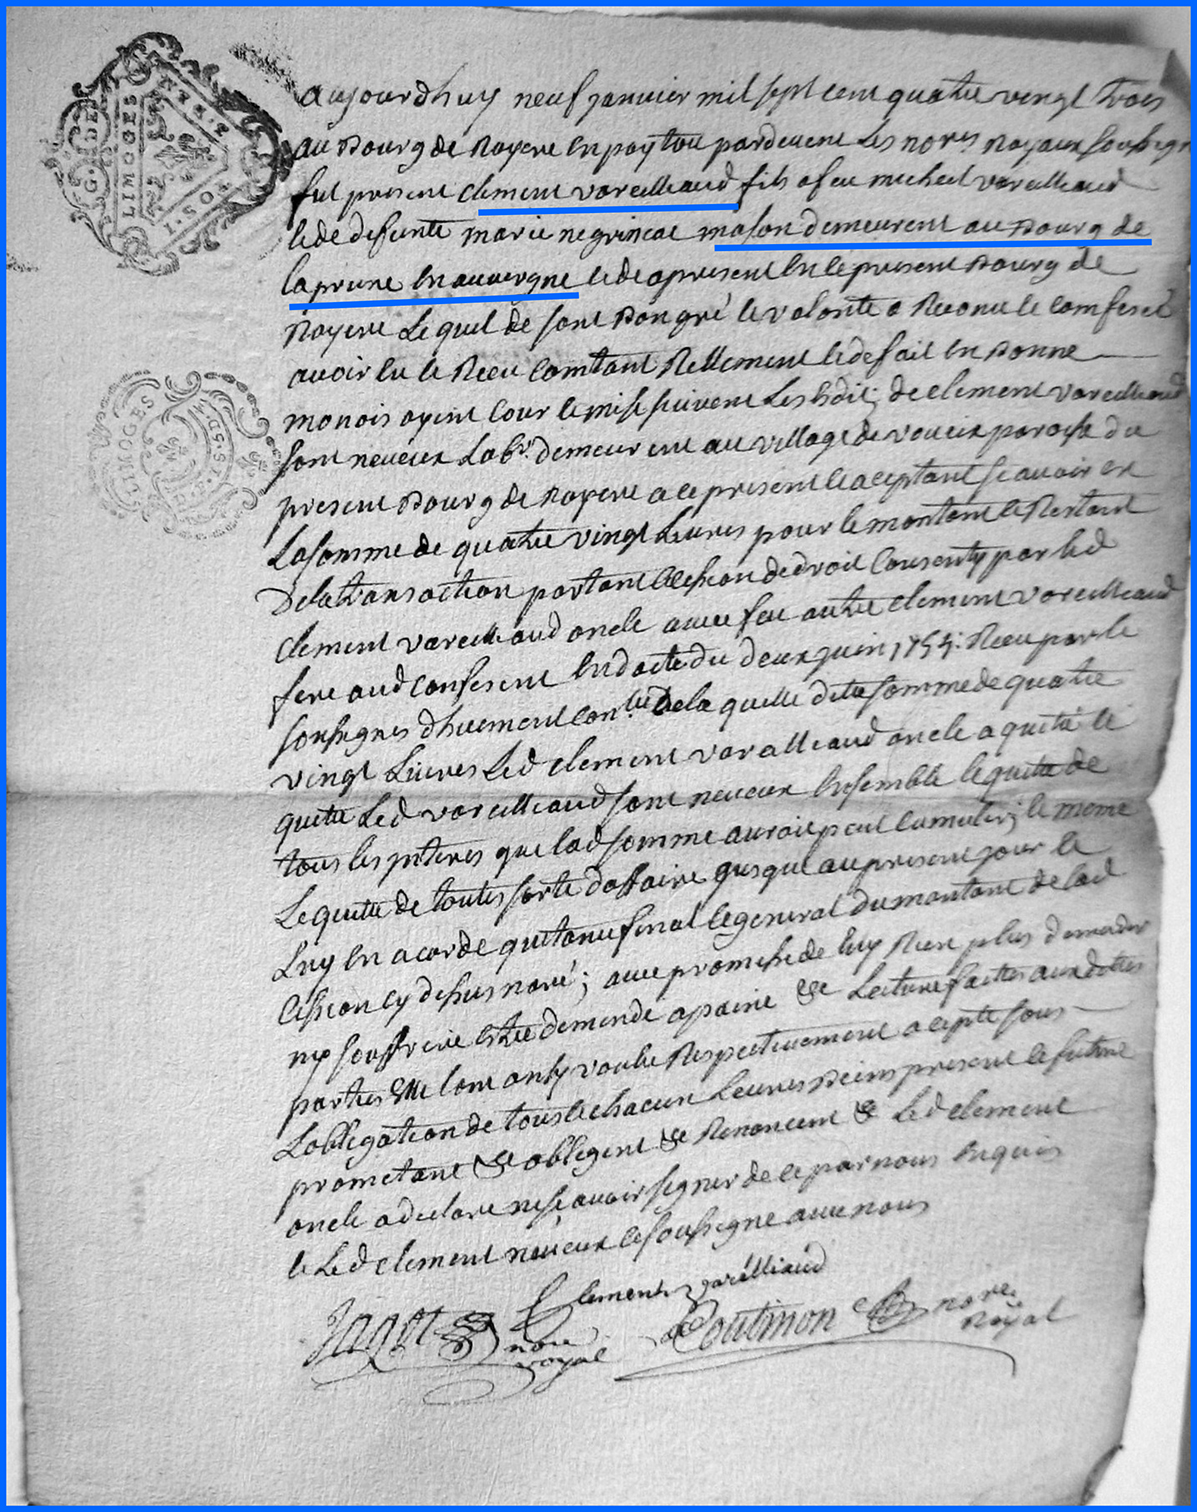 G. DE
LIMOGES
1. SOL
LIMOGES
aujourdhuy neuf janvier mil sept cent quatre vingt trois
au Bourg de Royere en poytou pardevent Les nores Royaux soussigne
fut present clement vareilleaud fils a feu micheel vareilleaud
le de defunte marie negrineae mason demeurent au Bourg de
laprune en auvergne le de apresent en le present Bourg de
Royere Lequel de sont Bon gré le volonte a Reconu le comfesse
avoir eu le Receu Comtant Rellement le de fait en Bonne
monois ayent Cour le mise suivent Les hdit; de clement vareilleaud
sont neveux Labr. demeurent au village de voueix paroisse du
present Bourg de Royere a ce present le aceptant scavoir est
La somme de quatre vingt Livres pour le montant le Restant
De la transaction portant Cession de droit Consenty par led
Clement vareilleaud oncle avec feu autre clement vareilleaud
fere aud confesent en date du deux juin 1755: Receu par le
soussignes dhuement con.lée De la quelle dite somme de quatre
vingt Livres Led clement vareilleaud oncle a quité le
quitte Led vareilleaud sont neveux Ensemble le quitte de
tous les jnteres que lad somme auroit peut cumuler; le meme
Le quitte de toutes sorte daffaire jusque au present jour le
Luy en acorde quitance final le general du montant de lad
Cession cy desus noré; avec promesse de luy Rien plus demander
ny souffrire estre demende a paine &c Lecture faittes aux dittes
parties Elle lont ansy voulu Respectivement acepté sous
Lobligation de tous le chacun Leures Biens present le future
prometant &c obligent &c Renoncent &c Led clement
oncle a declare ne scavoir signer de ce par nous Enquis
le Led clement neveux le soussigne avec nous
Clement varélliaud
Jagot nore royal
Coutinon nore Royal